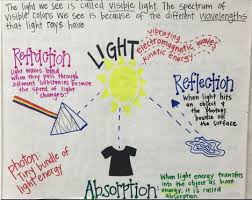 The light we see is called visible light. The spectrum of
visible colors we see is because of the different wavelengths
that light rays have
LIGHT
vibrating
electromagnetic waves
kinetic energy!
Refraction
light makes
when they pass through
different substances because
the speed of light
changes.
Reflection
When light hits
an object &
the photons
bounce off
the surface
Photon:
Tiny bundle of
light energy
Absorption
When light energy transfers
into the object as heat
energy, it is called
absorption.